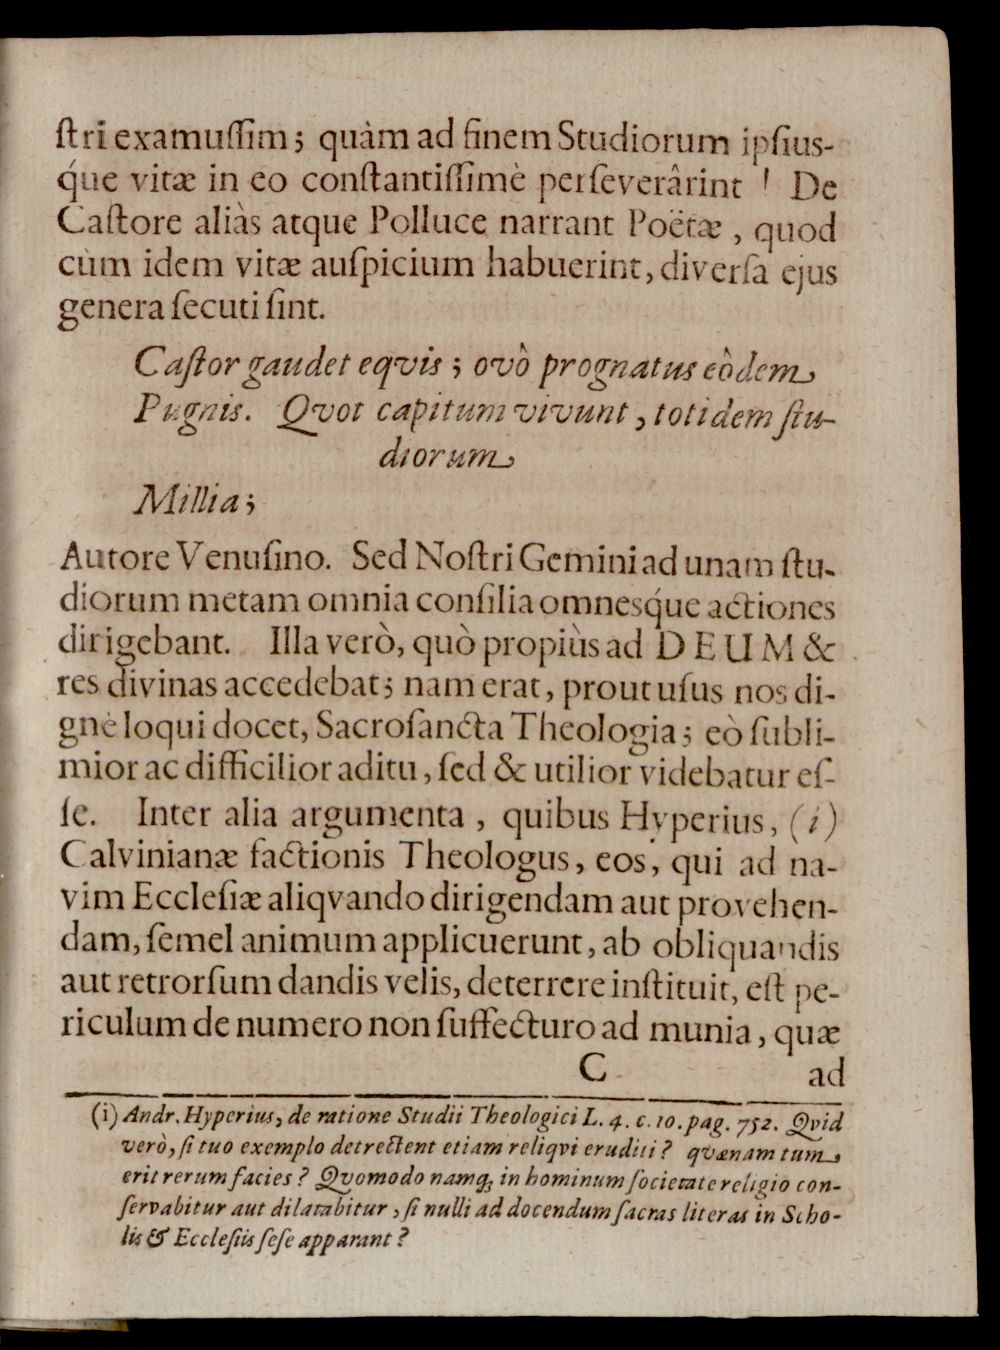 ſtri examuſſim; quàm ad finem Studiorum ipſius-
q́ue vitæ in eo conſtantiſſimè perſeverârint! De
Caſtore aliàs atque Polluce narrant Poëtæ, quod
cùm idem vitæ auſpicium habuerint, diverſa ejus
genera ſecuti ſint.
Caſtor gaudet eqvis; ovô prognatus eôdem
Pugnis. Qvot capitum vivunt, totidem ſtu-
diorum
Millia;
Autore Venuſino. Sed Noſtri Gemini ad unam ſtu-
diorum metam omnia conſilia omnesq́ue actiones
dirigebant. Illa verò, quò propiùs ad DEUM &
res divinas accedebat; nam erat, prout uſus nos di-
gnè loqui docet, Sacroſancta Theologia; eò ſubli-
mior ac difficilior aditu, ſed & utilior videbatur eſ-
ſe. Inter alia argumenta, quibus Hyperius, (i)
Calvinianæ factionis Theologus, eos, qui ad na-
vim Eccleſiæ aliqvando dirigendam aut provehen-
dam, ſemel animum applicuerunt, ab obliquandis
aut retrorſum dandis velis, deterrere inſtituit, eſt pe-
riculum de numero non ſuffecturo ad munia, quæ
C ad
(i) Andr. Hyperius, de ratione Studii Theologici L. 4. c. 10. pag. 752. Qvid
verò, ſi tuo exemplo detrectent etiam reliqvi eruditi? qvænam tum
erit rerum facies? Qvomodo namq; in hominum ſocietate religio con-
ſervabitur aut dilatabitur, ſi nulli ad docendum ſacras literas in Scho-
lis & Eccleſiis ſeſe apparant?